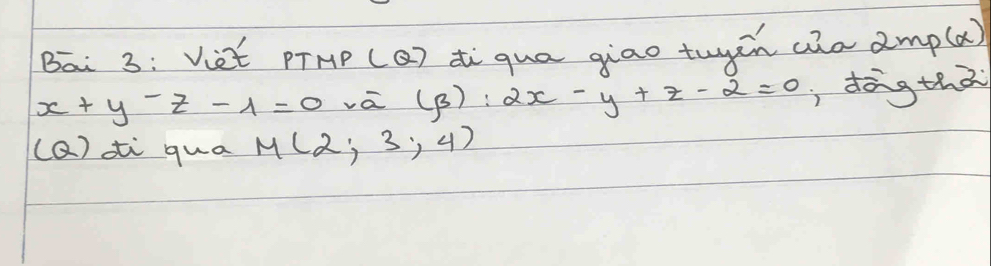 Bài 3: Viết PTMP (Q) đi qua giao tuyến của 2mp(α)
x + y - z - 1 = 0 và (β): 2x - y + z - 2 = 0; đồng thời
(Q) đi qua M(2; 3; 4)